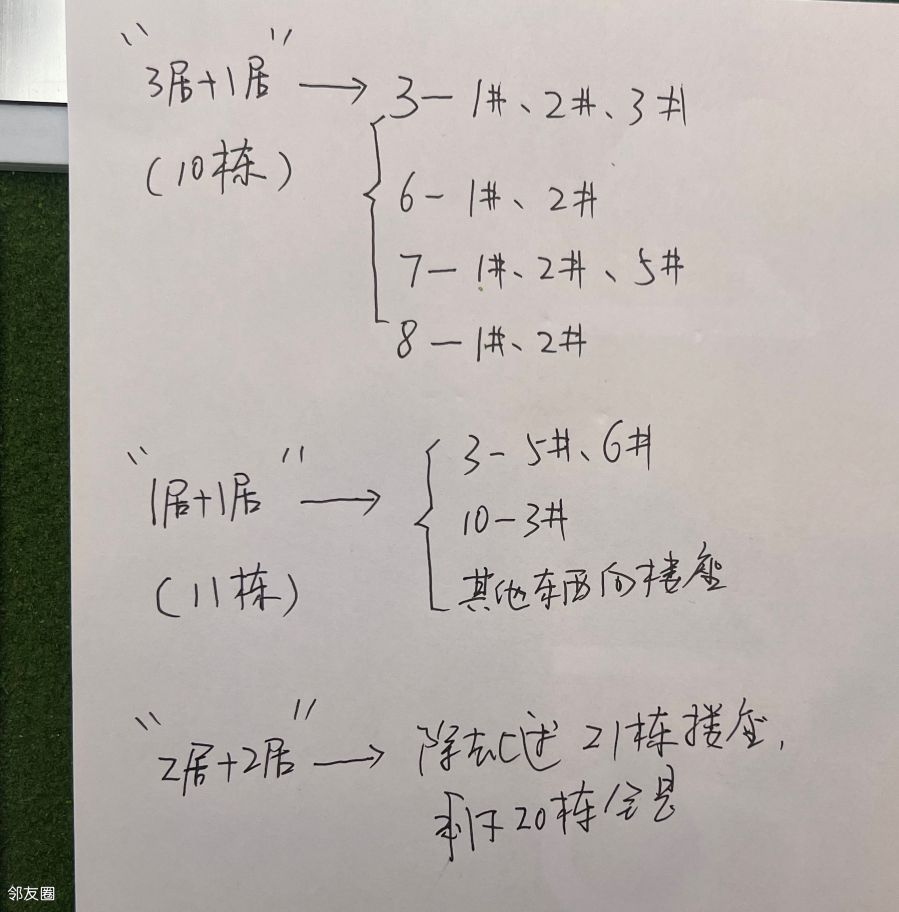 "3居+1居" → 3-1#、2#、3#
(10栋)
6-1#、2#
7-1#、2#、5#
8-1#、2#
"1居+1居" → 3-5#、6#
10-3#
(11栋)
其他东西向楼座
"2居+2居" → 除去以上这21栋楼座,
剩下20栋全是
邻友圈